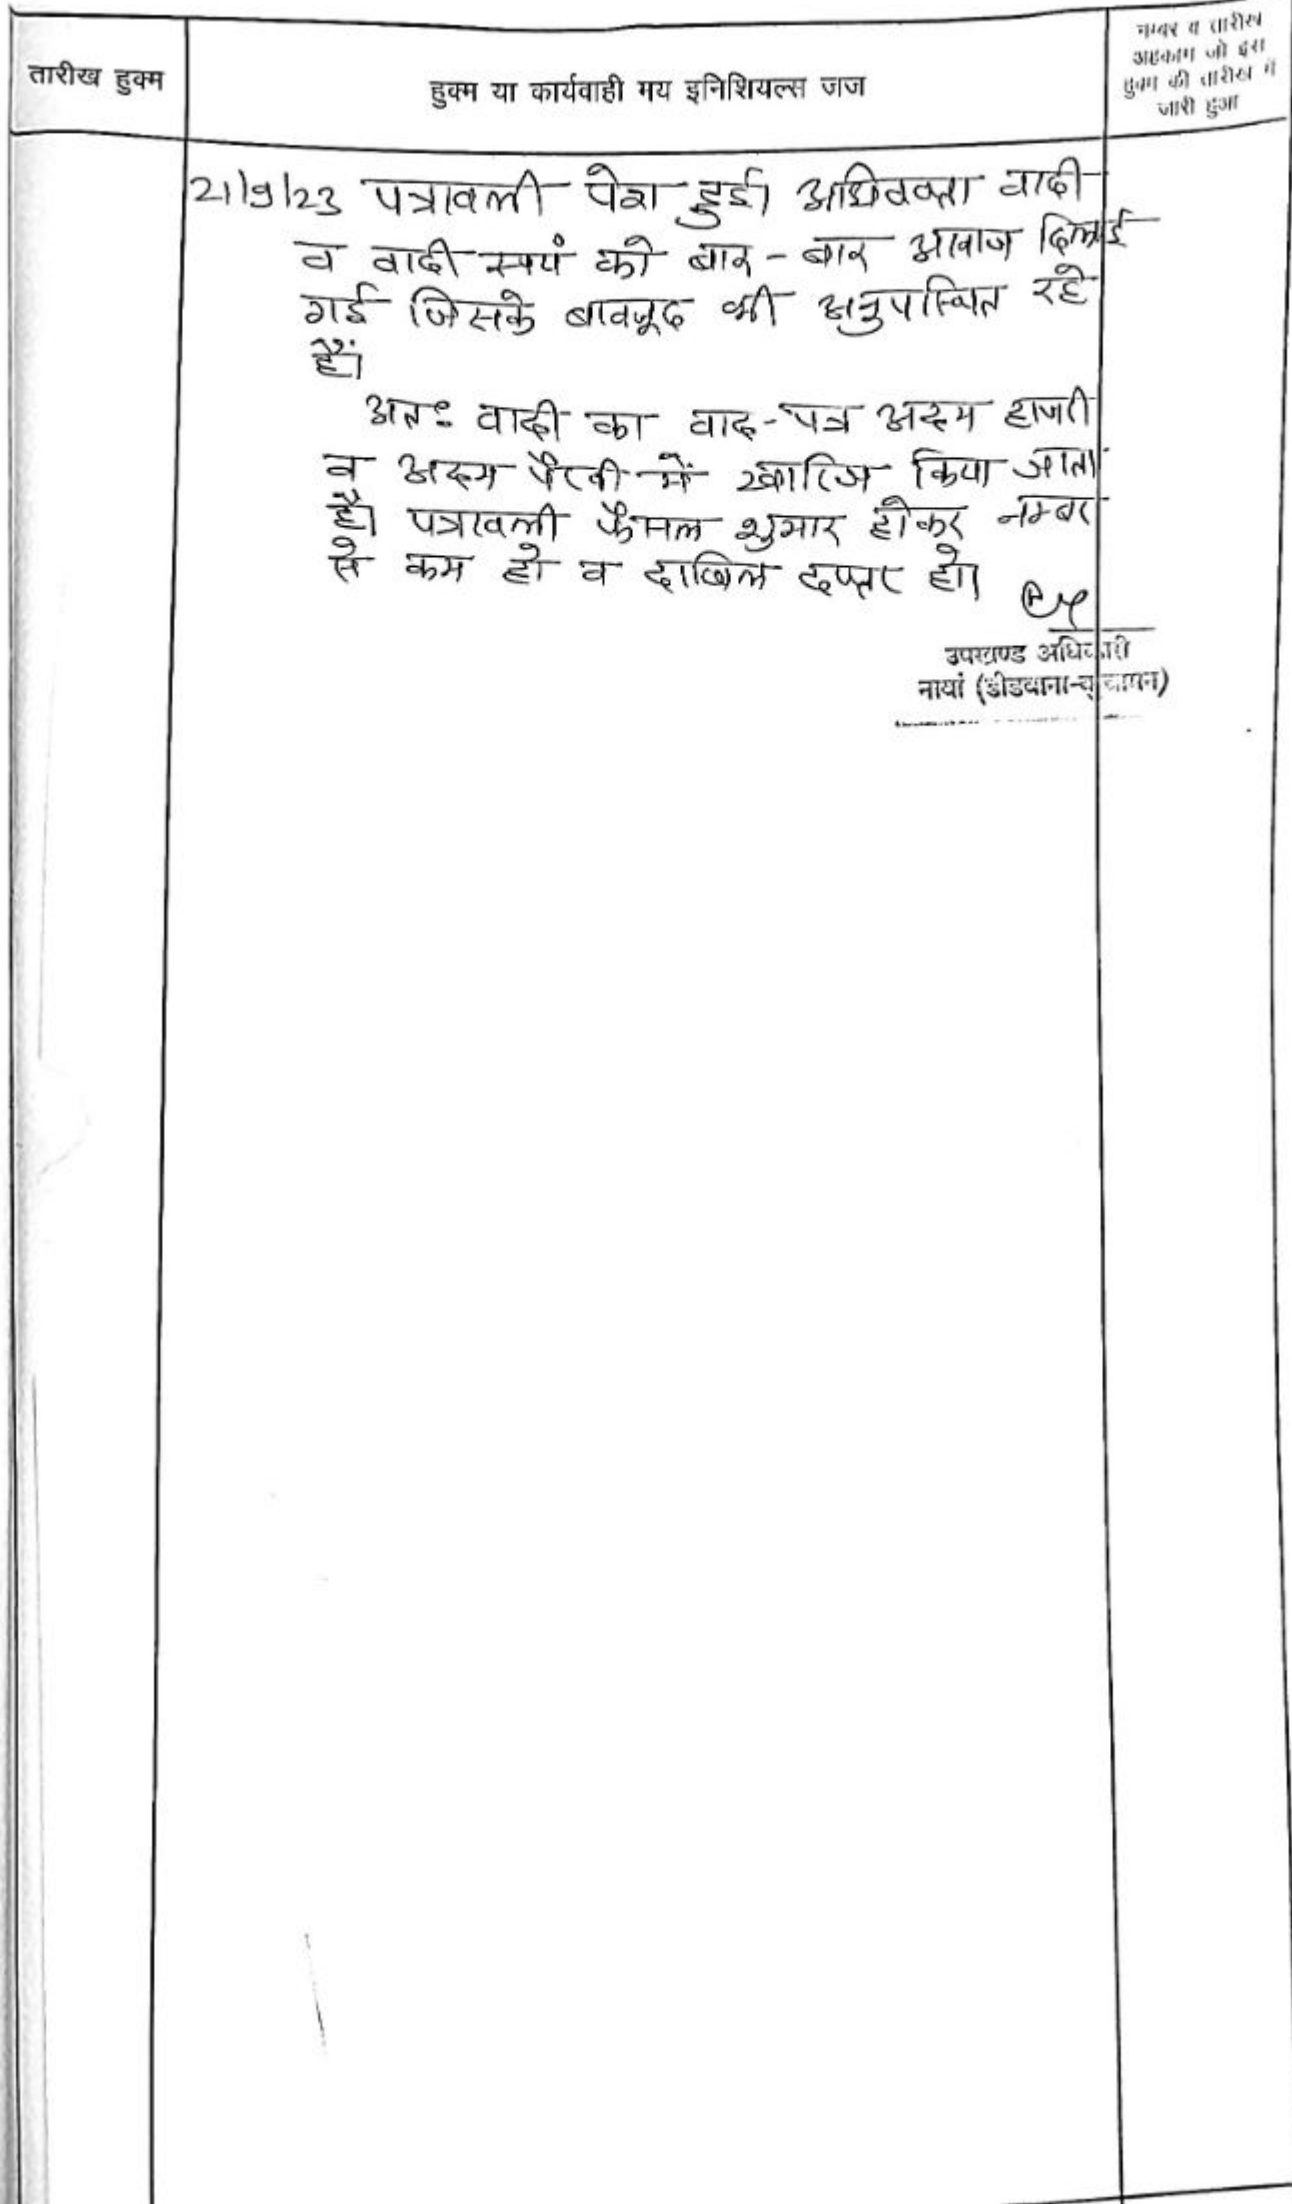 तारीख हुक्म
हुक्म या कार्यवाही मय इनिशियल्स जज
नम्बर व तारीख
अहकाम जो इस
हुक्म की तारीख में
जारी हुआ
21/9/23 पत्रावली पेश हुई। अधिवक्ता वादी
व वादी स्वयं को बार-बार आवाज दिलाई
गई जिसके बावजूद भी अनुपस्थित रहे
हैं।
अतः वादी का वाद-पत्र अदम हाजरी
व अदम पैरवी में खारिज किया जाता
है। पत्रावली फैसल शुमार होकर नम्बर
से कम हो व दाखिल दफ्तर हो।
उपखण्ड अधिकारी
नावां (डीडवाना-कुचामन)